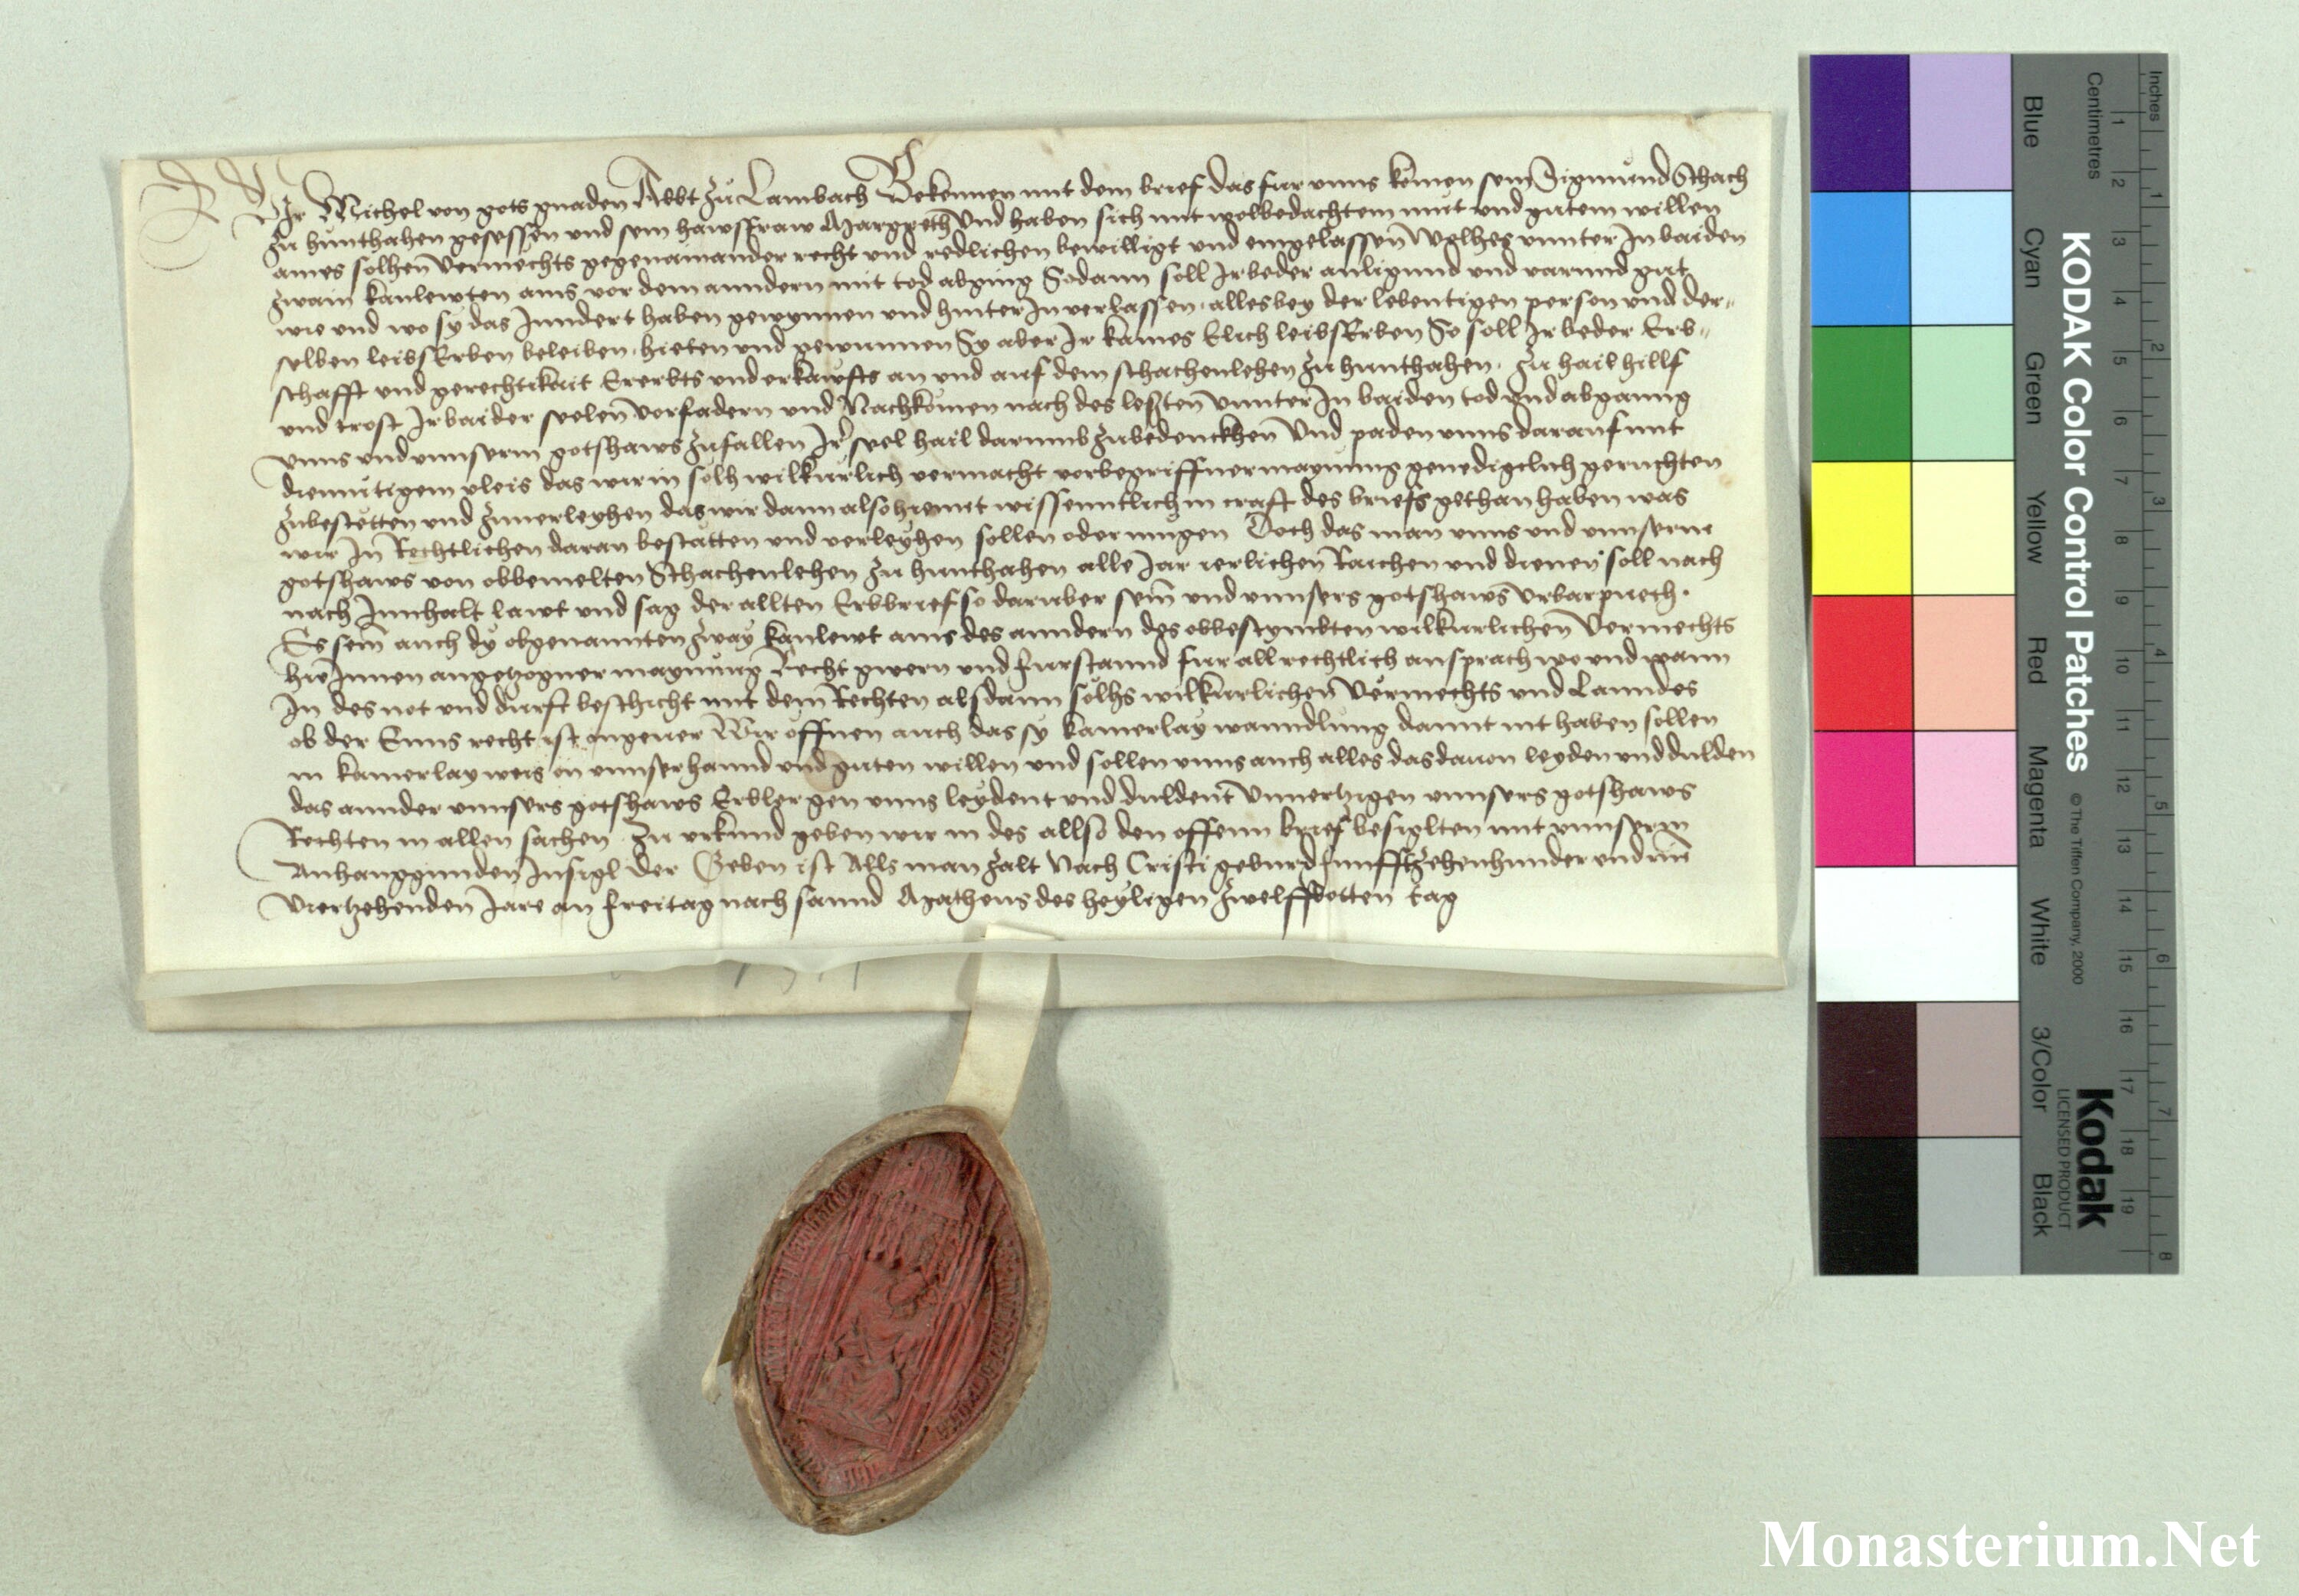 Wir Michel von gots gnaden Abbt zu Lambach Bekennen mit dem brief das fur unns komen sein Sigmund Schach
zu hunthahen gesessen und sein hawsfraw Margreth Und haben sich mit wolbedachtem mut und gutem willen
aines solhen vermechts gegenainander recht und redlichen bewilligt und eingelassen Welhes unnter In baiden
zwain kanlewten ains vor dem anndern mit tod abging Sodann soll Ir beder anligund und varund gut
wie und wo sy das Inndert haben gewynnen und hinter In verlassen alles bey der lebentigen person und der-
selben leibs Erben beleiben. hieten und gewunnen Sy aber Ir kaines Elich leibs Erben So soll Ir beder Erb-
schafft und gerechtikait Ererbts und erkawffts an und auf dem schachenlehen zu hunthahen. zu hail hillf
und trost Ir baider selen vorfadern und Nachkomen nach des lessten unnter In baiden tod und abganng
unns und unnserm gotshaws zufallen Ir sel hail darumb zubedenckhen Und paden unns darauf mit
diemutigem vleis das wir in solh wilkurlich vermacht vorbegriffner maynung genedigclich geruchten
zubestetten und zuuerleyhen das wir dann also hiemit wissenntlich in craft des briefs gethan haben was
wir In Rechtlichen daran bestatten und verleyhen sollen oder mugen Doch das man unns und unnserm
gotshaws von obbemelten Schachenlehen zu hunthahen alle Jar ierlichen Raichen und dienen soll nach
nach Innhalt lawt und sag der allten Erbbrief so daruber sein und unnsers gotshaws urbarpuech.
Es sein auch dy obgenannten zway kanlewt ains des anndern des obbestymbten wilkurlichen Vermechts
hie Innen angetzogner maynung Recht gwern und furstannd fur all rechtlich ansprach wo und wann
In des not und durft beschicht mit dem Rechten als dann solhs wilkurlichen Vermechts und Lanndes
ob der Enns recht ist ongeuer Wir offnen auch das sy kainerlay wanndlung damit nit haben sollen
in kainerlay weis on unnser hannd und guten willen und sollen unns auch alles das dauon leyden und dulden
das annder unnsers gotshaws Erbler gen unns leydent und duldent Unuertzigen unnsers gotshaws
Rechten in allen sachen Zu urkund geben wir in des allso den offenn brief besiglten mit unnserm
Anhanggunden Insigl Der Geben ist Alls man zalt Nach Cristi geburd funfftzehenhunder und im
Viertzehenden Jare an freitag nach sannd Matheus des heyligen zwelffbotten tag
Inches
Centimetres
KODAK Color Control Patches
© The Tiffen Company, 2000
Kodak
LICENSED PRODUCT
Blue
Cyan
Green
Yellow
Red
Magenta
White
3/Color
Black
1 2 3 4 5 6 7 8 9 10 11 12 13 14 15 16 17 18 19
1 2 3 4 5 6 7 8
Monasterium.Net